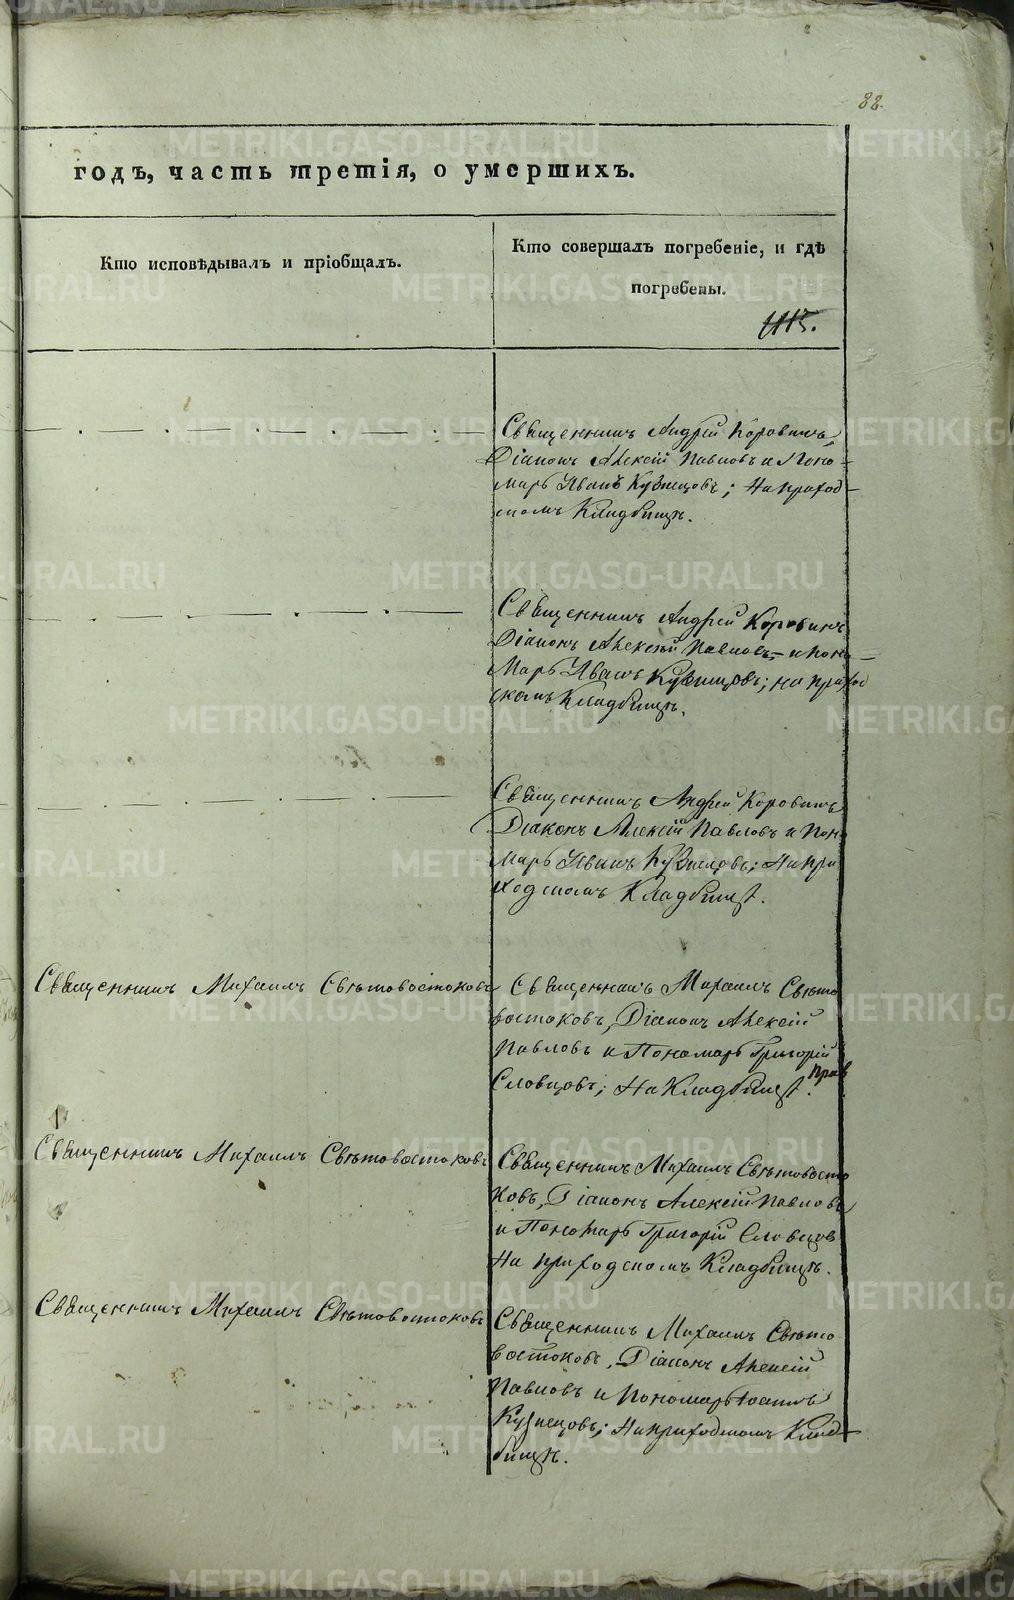 88.
годъ, часть третія, о умершихъ.
Кто исповѣдывалъ и пріобщалъ.
Кто совершалъ погребеніе, и гдѣ
погребены.
Священникъ Андрей Коровинъ,
Діаконъ Алексій Павловъ и Поно-
марь Иванъ Кузнецовъ; На приход-
скомъ Кладбищѣ.
Священникъ Андрей Коровинъ
Діаконъ Алексій Павловъ и Поно-
марь Иванъ Кузнецовъ; на приход
скомъ Кладбищѣ.
Священникъ Андрей Коровинъ
Діаконъ Алексій Павловъ и Поно
марь Иванъ Кузнецовъ; На при
ходскомъ Кладбищѣ.
Священникъ Михаилъ Свѣтовостоковъ
Священникъ Михаилъ Свѣто
востоковъ, Діаконъ Алексій
Павловъ и Пономарь Григорій
Словцовъ; На Кладбищѣ. прих
Священникъ Михаилъ Свѣтовостоковъ
Священникъ Михаилъ Свѣтовосто
ковъ, Діаконъ Алексій Павловъ
и Пономарь Григорій Словцов
На приходскомъ Кладбищѣ.
Священникъ Михаилъ Свѣтовостоковъ
Священникъ Михаилъ Свѣто
востоковъ, Діаконъ Алексій
Павловъ и Пономарь Іоаннъ
Кузнецовъ; На приходскомъ Клад-
бищѣ.
METRIKI.GASO-URAL.RU